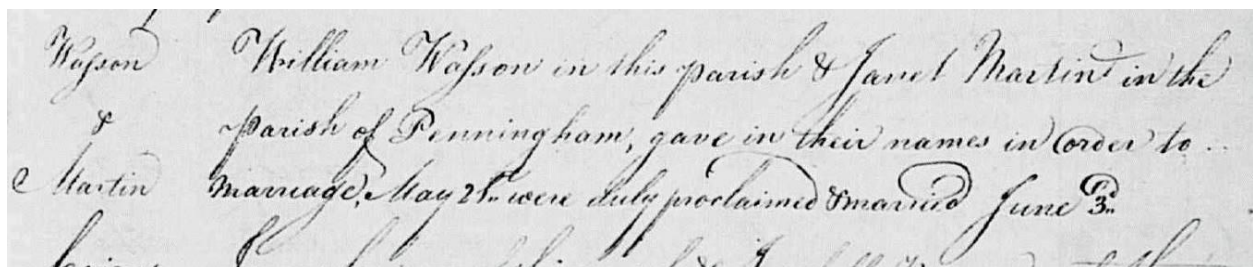 Wasson William Wasson in this parish & Janet Martin in the
& parish of Penningham, gave in their names in order to
Martin marriage, May were duly proclaimed & married June 3d